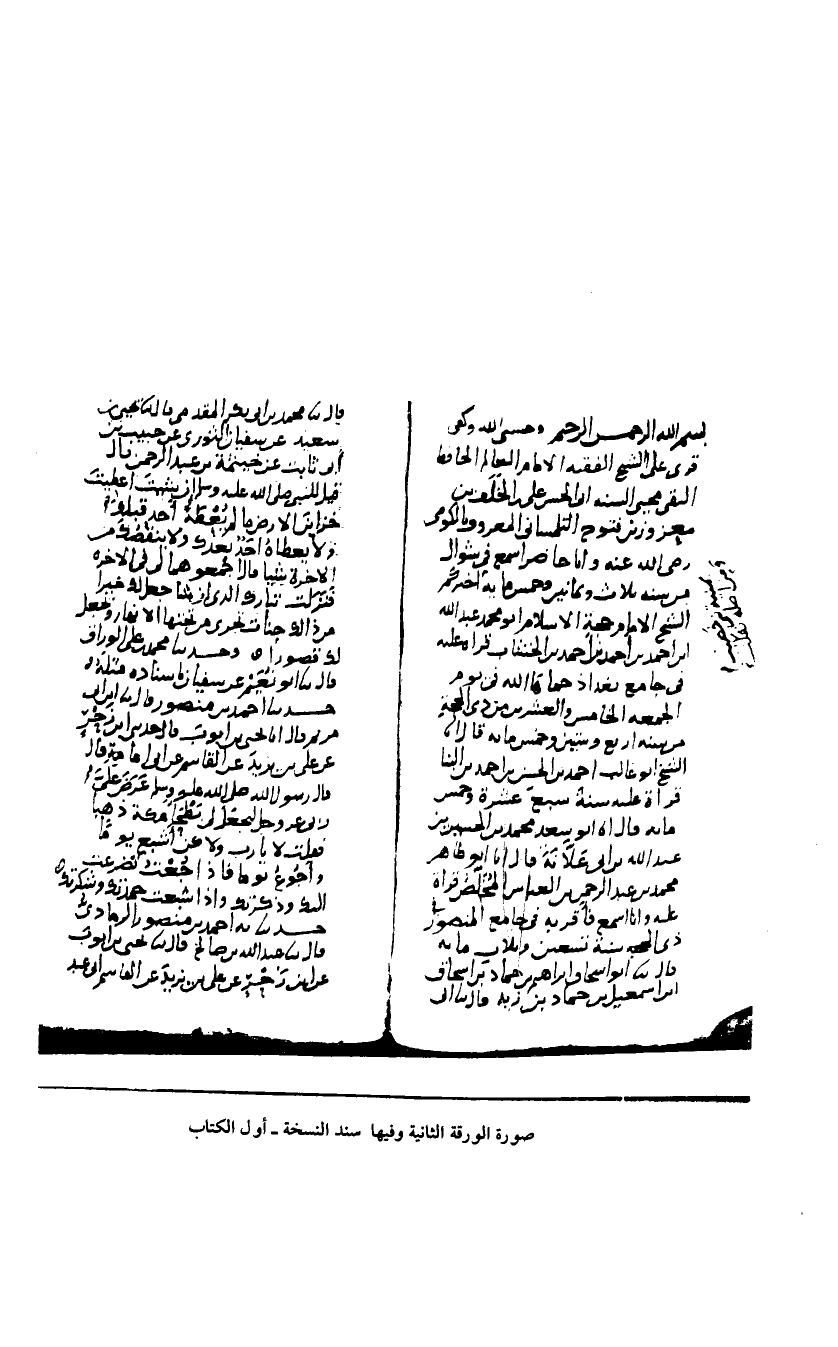 بسم الله الرحمن الرحيم وحسبي الله وكفى
قرى على الشيخ الفقيه الامام العالم الحافظ
التقي محيي السنه ابي الحسن على بن
معزوز بن فتوح التلمساني المعروف بالكومي
رضي الله عنه وانا حاضر اسمع في شوال
من سنه ثلاث وثمانين وخمس مايه اخبركم
الشيخ الامام حجة الاسلام ابو محمد عبد الله
ابن احمد بن احمد بن احمد بن الخشاب قراه عليه
في جامع بغداد حماها الله في يوم
الجمعه الخامس والعشرين من ذي الحجة
من سنه اربع وستين وخمس مايه قال انا
الشيخ ابو غالب احمد بن الحسن بن احمد بن البنا
قراة عليه سنة سبع عشرة وخمس
مايه قال انا ابو سعد محمد بن الحسين بن
عبد الله بن ابي علانة قال انا ابو طاهر
محمد بن عبد الرحمن بن العباس المخلص قراة
عليه وانا اسمع فاقر به في جامع المنصور في
ذي الحجه سنة تسعين وثلاث مايه
قال نا ابو اسحاق ابراهيم بن حماد بن اسحاق
ابن اسمعيل بن حماد بن زيد قال نا ابي
قال نا محمد بن ابي بكر المقدمي قال نا يحيى بن
سعيد عن سفيان الثوري عن حبيب بن
ابي ثابت عن خيثمة بن عبد الرحمن قال
قيل للنبي صلى الله عليه وسلم ان شيت اعطيت
خزاين الارض ما لم يعطه احد قبلك
ولا يعطاه احد بعدك ولا ينقصك من
الاخرة شيا قال اجمعوهما لي في الاخره
فنزلت تبارك الذي ان شا جعل لك خيرا
من ذلك جنات تجري من تحتها الانهار ويجعل
لك قصورا ه وحدثنا محمد بن علي الوراق
قال نا ابو نعيم عن سفيان باسناده مثله ه
حدثنا احمد بن منصور قال نا ابن ابي
مريم قال انا يحيى بن ايوب قال حدثني ابن زحر
عن علي بن يزيد عن القاسم عن ابي امامة قال
قال رسول الله صلى الله عليه وسلم عرض علي
ربي عز وجل ليجعل لي بطحا مكة ذهبا
فقلت لا يارب ولاكن اشبع يوما
واجوع يوما فاذا جعت تضرعت
اليك وذكرتك واذا شبعت حمدتك وشكرتك ه
حدثنا به احمد بن منصور الرمادي
قال نا عبد الله بن صالح قال نا يحيى بن ايوب
عن ابن زحر عن علي بن يزيد عن القاسم ابي عبد
صورة الورقة الثانية وفيها سند النسخة ـ أول الكتاب